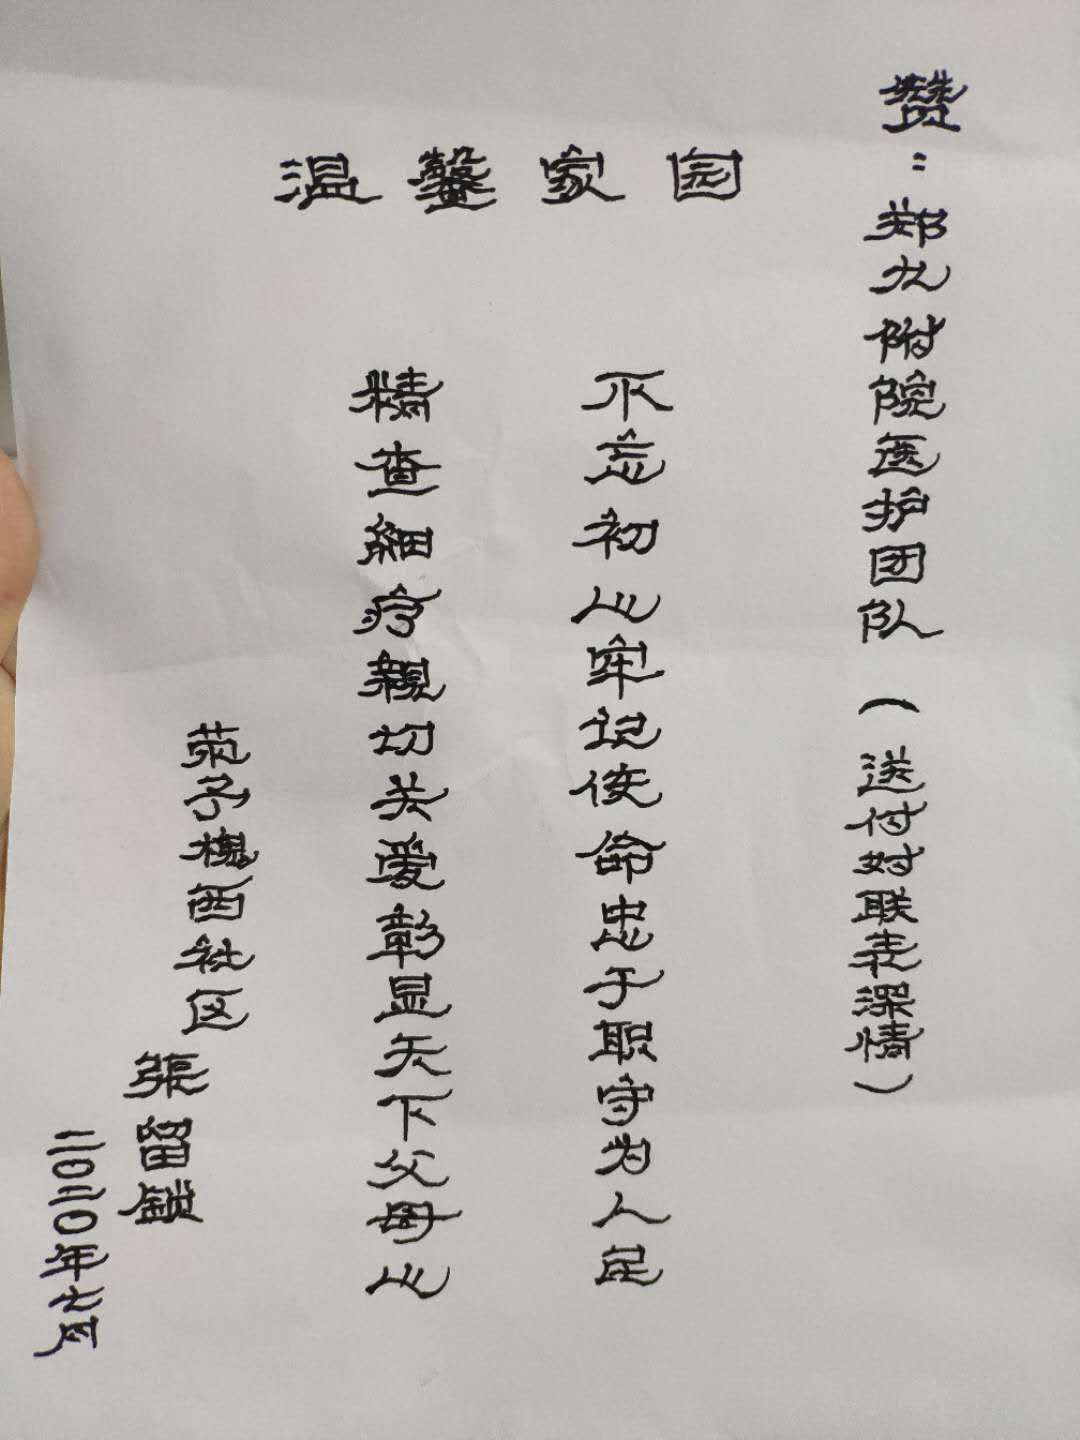 赞：郑大附院医护团队（送付对联表深情）
温馨家园
不忘初心牢记使命忠于职守为人民
精查細疗親切关爱彰显天下父母心
荥子槐西社区
張留鎖
二〇二〇年七月